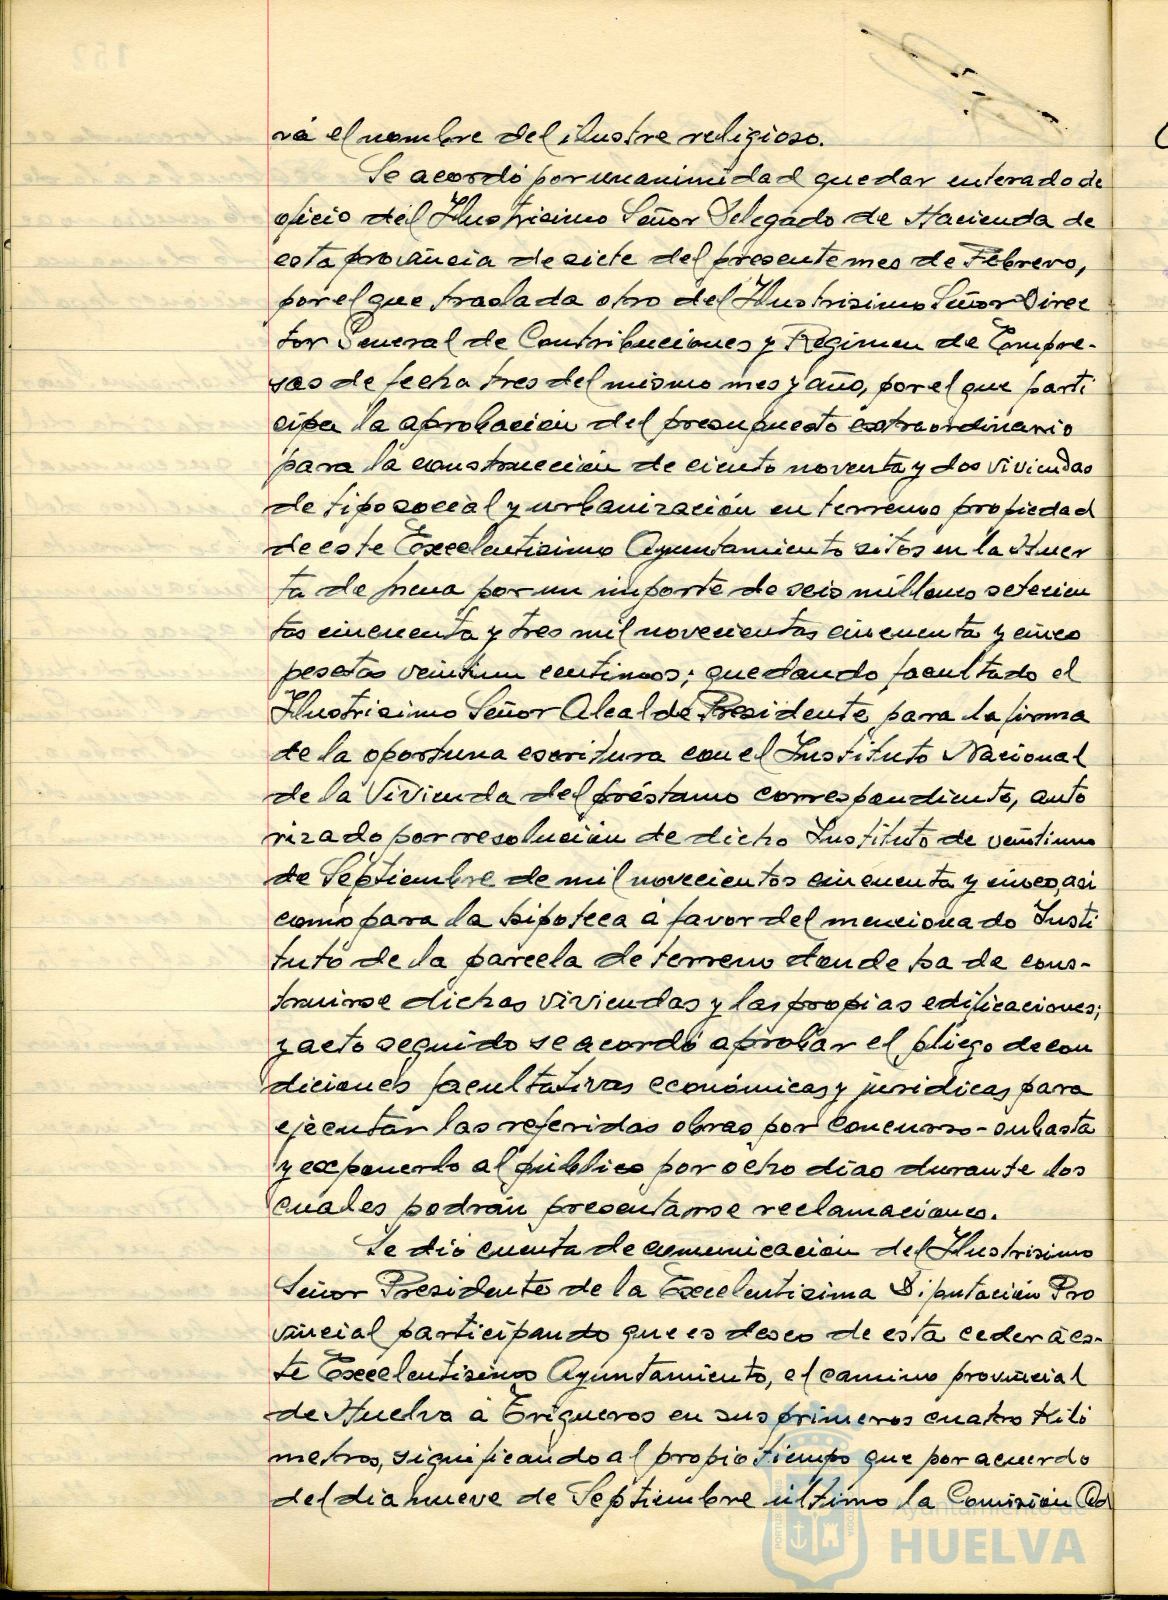 rá el nombre del ilustre religioso.
Se acordó por unanimidad quedar enterado de
oficio del Ilustrisimo Señor Delegado de Hacienda de
esta provincia de siete del presente mes de Febrero,
por el que traslada otro del Ilustrisimo Señor Direc
tor General de Contribuciones y Régimen de Empre-
sas de fecha tres del mismo mes y año, por el que parti
cipa la aprobación del presupuesto extraordinario
para la construcción de ciento noventa y dos viviendas
de tipo social y urbanización en terrenos propiedad
de este Excelentisimo Ayuntamiento sitos en la Huer
ta de Mena por un importe de seis millones setecien
tas cincuenta y tres mil novecientas cincuenta y cinco
pesetas veintiun centimos; quedando facultado el
Ilustrisimo Señor Alcalde Presidente para la firma
de la oportuna escritura con el Instituto Nacional
de la Vivienda del préstamo correspondiente, auto
rizado por resolución de dicho Instituto de veintiuno
de Septiembre de mil novecientos cincuenta y cinco, asi
como para la hipoteca á favor del mencionado Insti
tuto de la parcela de terreno donde ha de cons-
truirse dichas viviendas y las propias edificaciones;
y acto seguido se acordó aprobar el pliego de con
diciones facultativas económicas y juridicas para
ejecutar las referidas obras por concurso-subasta
y exponerlo al público por ocho dias durante los
cuales podrán presentarse reclamaciones.
Se dió cuenta de comunicación del Ilustrisimo
Señor Presidente de la Excelentisima Diputación Pro
vincial participando que es deseo de esta ceder á es-
te Excelentisimo Ayuntamiento, el camino provincial
de Huelva á Trigueros en sus primeros cuatro Kiló
metros, significando al propio tiempo que por acuerdo
del dia nueve de Septiembre último la Comisión Ad
Ayuntamiento de
HUELVA